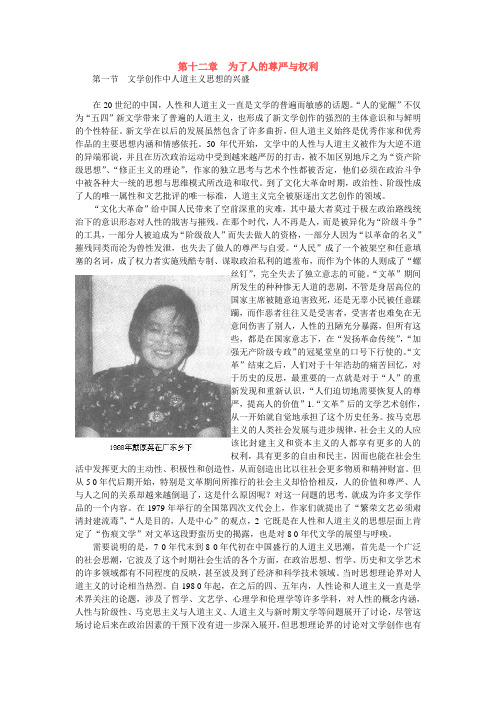 第十二章　为了人的尊严与权利
第一节　文学创作中人道主义思想的兴盛
在20世纪的中国，人性和人道主义一直是文学的普遍而敏感的话题。“人的觉醒”不仅
为“五四”新文学带来了普遍的人道主义，也形成了新文学创作的强烈的主体意识和与鲜明
的个性特征。新文学在以后的发展虽然包含了许多曲折，但人道主义始终是优秀作家和优秀
作品的主要思想内涵和情感依托。50 年代开始，文学中的人性与人道主义被作为大逆不道
的异端邪说，并且在历次政治运动中受到越来越严厉的打击，被不加区别地斥之为“资产阶
级思想”、“修正主义的理论”，作家的独立思考与艺术个性都被否定，他们必须在政治斗争
中被各种大一统的思想与思维模式所改造和取代。到了文化大革命时期，政治性、阶级性成
了人的唯一属性和文艺批评的唯一标准，人道主义完全被驱逐出文艺创作的领域。
“文化大革命”给中国人民带来了空前深重的灾难，其中最大者莫过于极左政治路线统
治下的意识形态对人性的戕害与摧残。在那个时代，人不再是人，而是被异化为“阶级斗争”
的工具，一部分人被迫成为“阶级敌人”而失去做人的资格，一部分人因为“以革命的名义”
摧残同类而沦为兽性发泄，也失去了做人的尊严与自爱。“人民”成了一个被架空和任意填
塞的名词，成了权力者实施残酷专制、谋取政治私利的遮羞布，而作为个体的人则成了“螺
丝钉”，完全失去了独立意志的可能。“文革”期间
所发生的种种惨无人道的悲剧，不管是身居高位的
国家主席被随意迫害致死，还是无辜小民被任意蹂
躏，而作恶者往往又是受害者，受害者也难免在无
意间伤害了别人，人性的丑陋充分暴露，但所有这
些，都是在国家意志下，在“发扬革命传统”，“加
强无产阶级专政”的冠冕堂皇的口号下行使的。“文
革”结束之后，人们对于十年浩劫的痛苦回忆，对
于历史的反思，最重要的一点就是对于“人”的重
新发现和重新认识，“人们迫切地需要恢复人的尊
严，提高人的价值”1。“文革”后的文学艺术创作，
从一开始就自觉地承担了这个历史任务。按马克思
主义的人类社会发展与进步规律，社会主义的人应
该比封建主义和资本主义的人都享有更多的人的
权利，具有更多的自由和民主，因而也能在社会生
1988年戴厚英在广东乡下
活中发挥更大的主动性、积极性和创造性，从而创造出比以往社会更多物质和精神财富。但
从50年代后期开始，特别是文革期间所推行的社会主义却恰恰相反，人的价值和尊严、人
与人之间的关系却越来越倒退了，这是什么原因呢？对这一问题的思考，就成为许多文学作
品的一个内容。在1979年举行的全国第四次文代会上，作家们就提出了“繁荣文艺必须肃
清封建流毒”、“人是目的，人是中心”的观点，2 它既是在人性和人道主义的思想层面上肯
定了“伤痕文学”对文革这段野蛮历史的揭露，也是对80年代文学的展望与呼唤。
需要说明的是，70年代末到80年代初在中国盛行的人道主义思潮，首先是一个广泛
的社会思潮，它波及了这个时期社会生活的各个方面，在政治思想、哲学、历史和文学艺术
的许多领域都有不同程度的反映，甚至波及到了经济和科学技术领域。当时思想理论界对人
道主义的讨论相当热烈。自1980年起，在之后的四、五年内，人性论和人道主义一直是学
术界关注的论题，涉及了哲学、文艺学、心理学和伦理学等许多学科，对人性的概念内涵、
人性与阶级性、马克思主义与人道主义、人道主义与新时期文学等问题展开了讨论，尽管这
场讨论后来在政治因素的干预下没有进一步深入展开，但思想理论界的讨论对文学创作也有